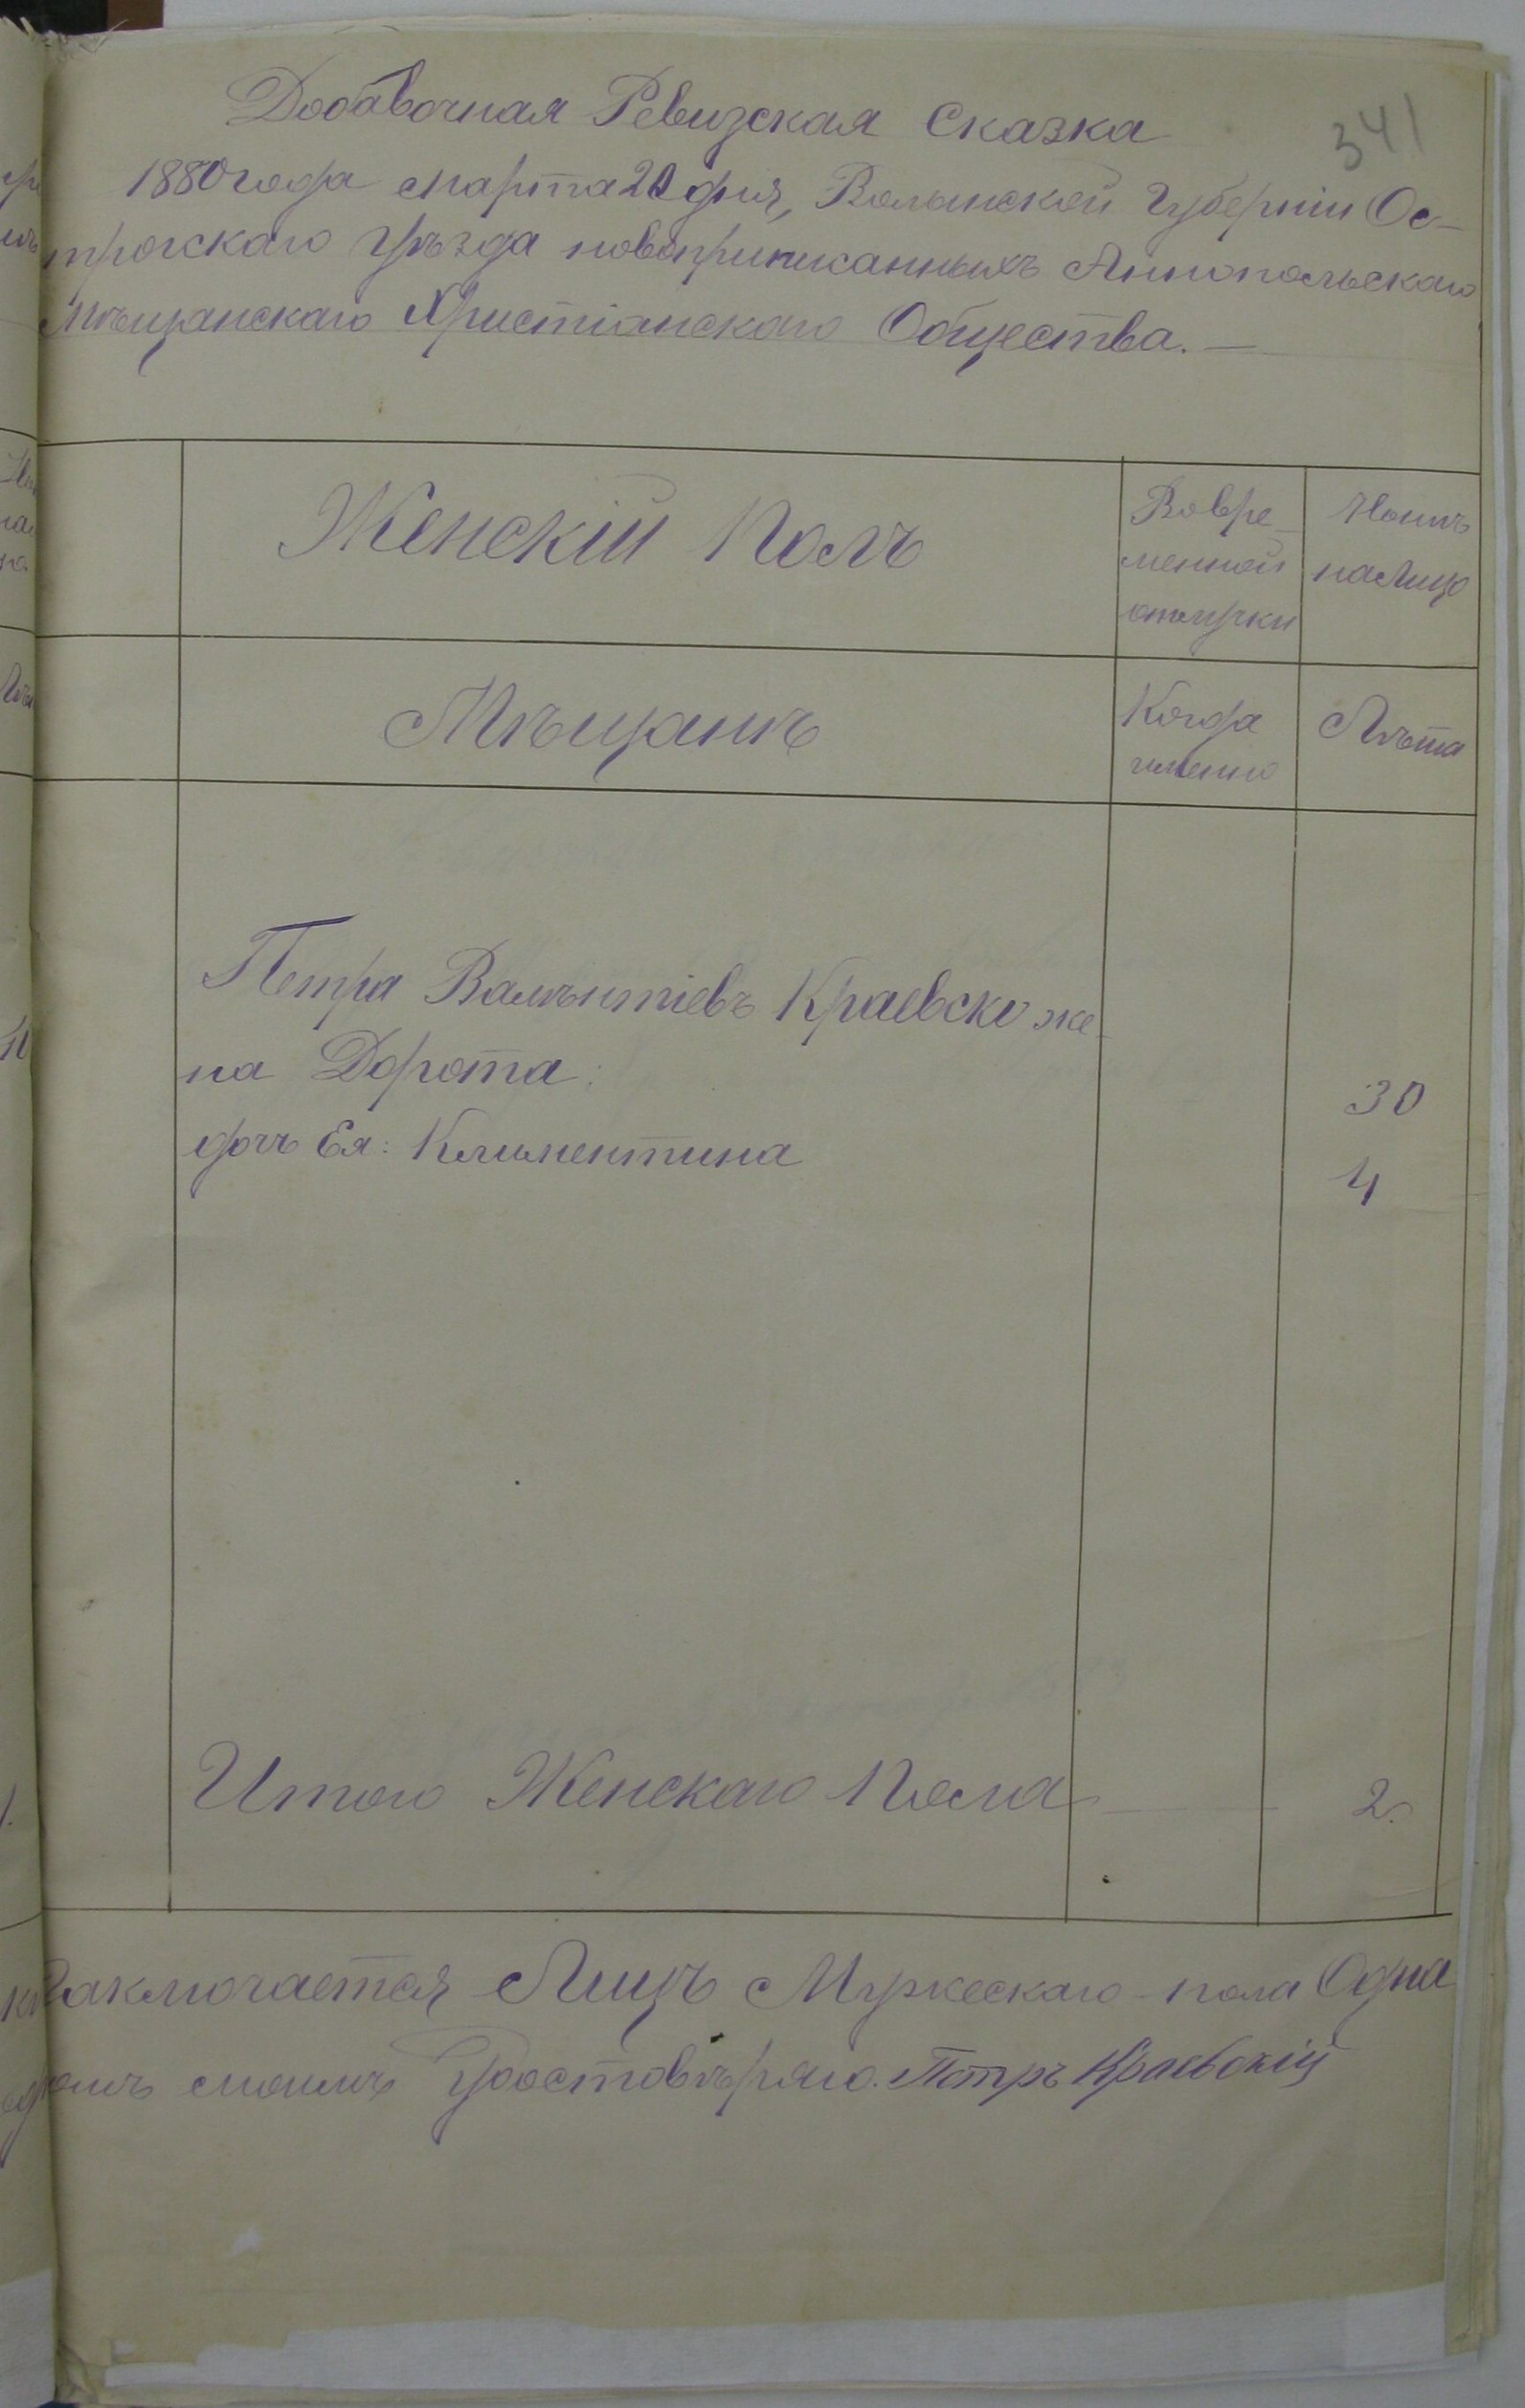 Добавочная Ревизская Сказка
341
1880 года марта 20 дня, Волынской Губерніи Ос-
трогскаго Уѣзда новоприписанныхъ Аннопольскаго
Мѣщанскаго Христіанскаго Общества. —
Женскій Полъ
Во вре-
менной
отлучки
Нынѣ
на Лицо
Мѣщанъ
Когда
именно
Лѣта
Петра Валентіевъ Краевско же-
на Дорота:
30
дочь Ея: Климентина
4
Итого Женскаго Пола — 2.
заключается Лицъ Мужескаго пола Одна
Удостовѣряю. Петръ Краевскій